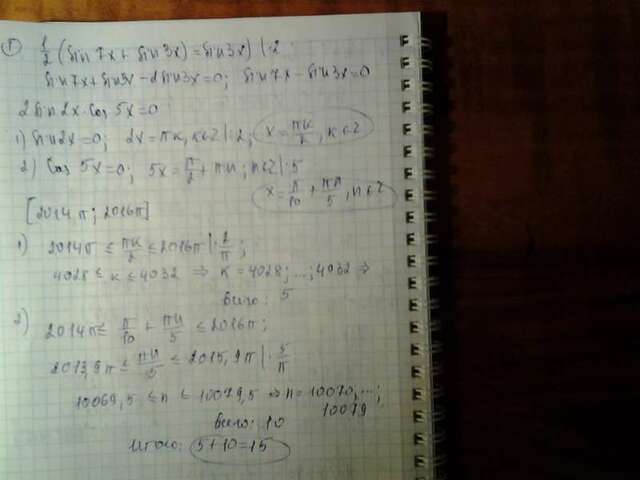 ① 1/2 (sin 7x + sin 3x) = sin 3x) | · 2
sin 7x + sin 3x - 2 sin 3x = 0; sin 7x - sin 3x = 0
2 sin 2x · cos 5x = 0
1) sin 2x = 0; 2x = πk, k ∈ Z | : 2; x = πk/2, k ∈ Z
2) cos 5x = 0; 5x = π/2 + πn; n ∈ Z | : 5
x = π/10 + πn/5, n ∈ Z
[2014π; 2016π]
1) 2014π ≤ πk/2 ≤ 2016π | · 2/π;
4028 ≤ k ≤ 4032 ⇒ k = 4028; ...; 4032 ⇒
всего: 5
2) 2014π ≤ π/10 + πn/5 ≤ 2016π;
2013,9π ≤ πn/5 ≤ 2015,9π | · 5/π
10069,5 ≤ n ≤ 10079,5 ⇒ n = 10070, ...;
10079
всего: 10
Итого: 5 + 10 = 15